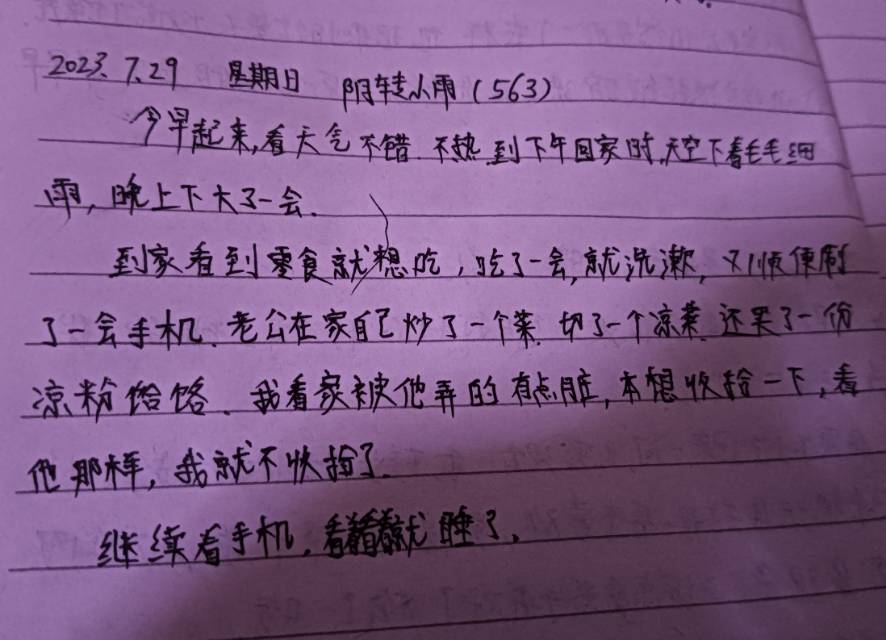 2023.7.29 星期日 阴转小雨(563)
今早起来,看天气不错.不热.到下午回家时,天空下着毛毛细
雨,晚上下大了一会.
到家看到零食就想吃,吃了一会,就洗漱,又顺便刷
了一会手机.老公在家自己炒了一个菜.切了一个凉菜.还买了一份
凉粉饸饹.我看家被他弄的有点脏,本想收拾一下,看
他那样,我就不收拾了.
继续看手机.看着看着就睡了.